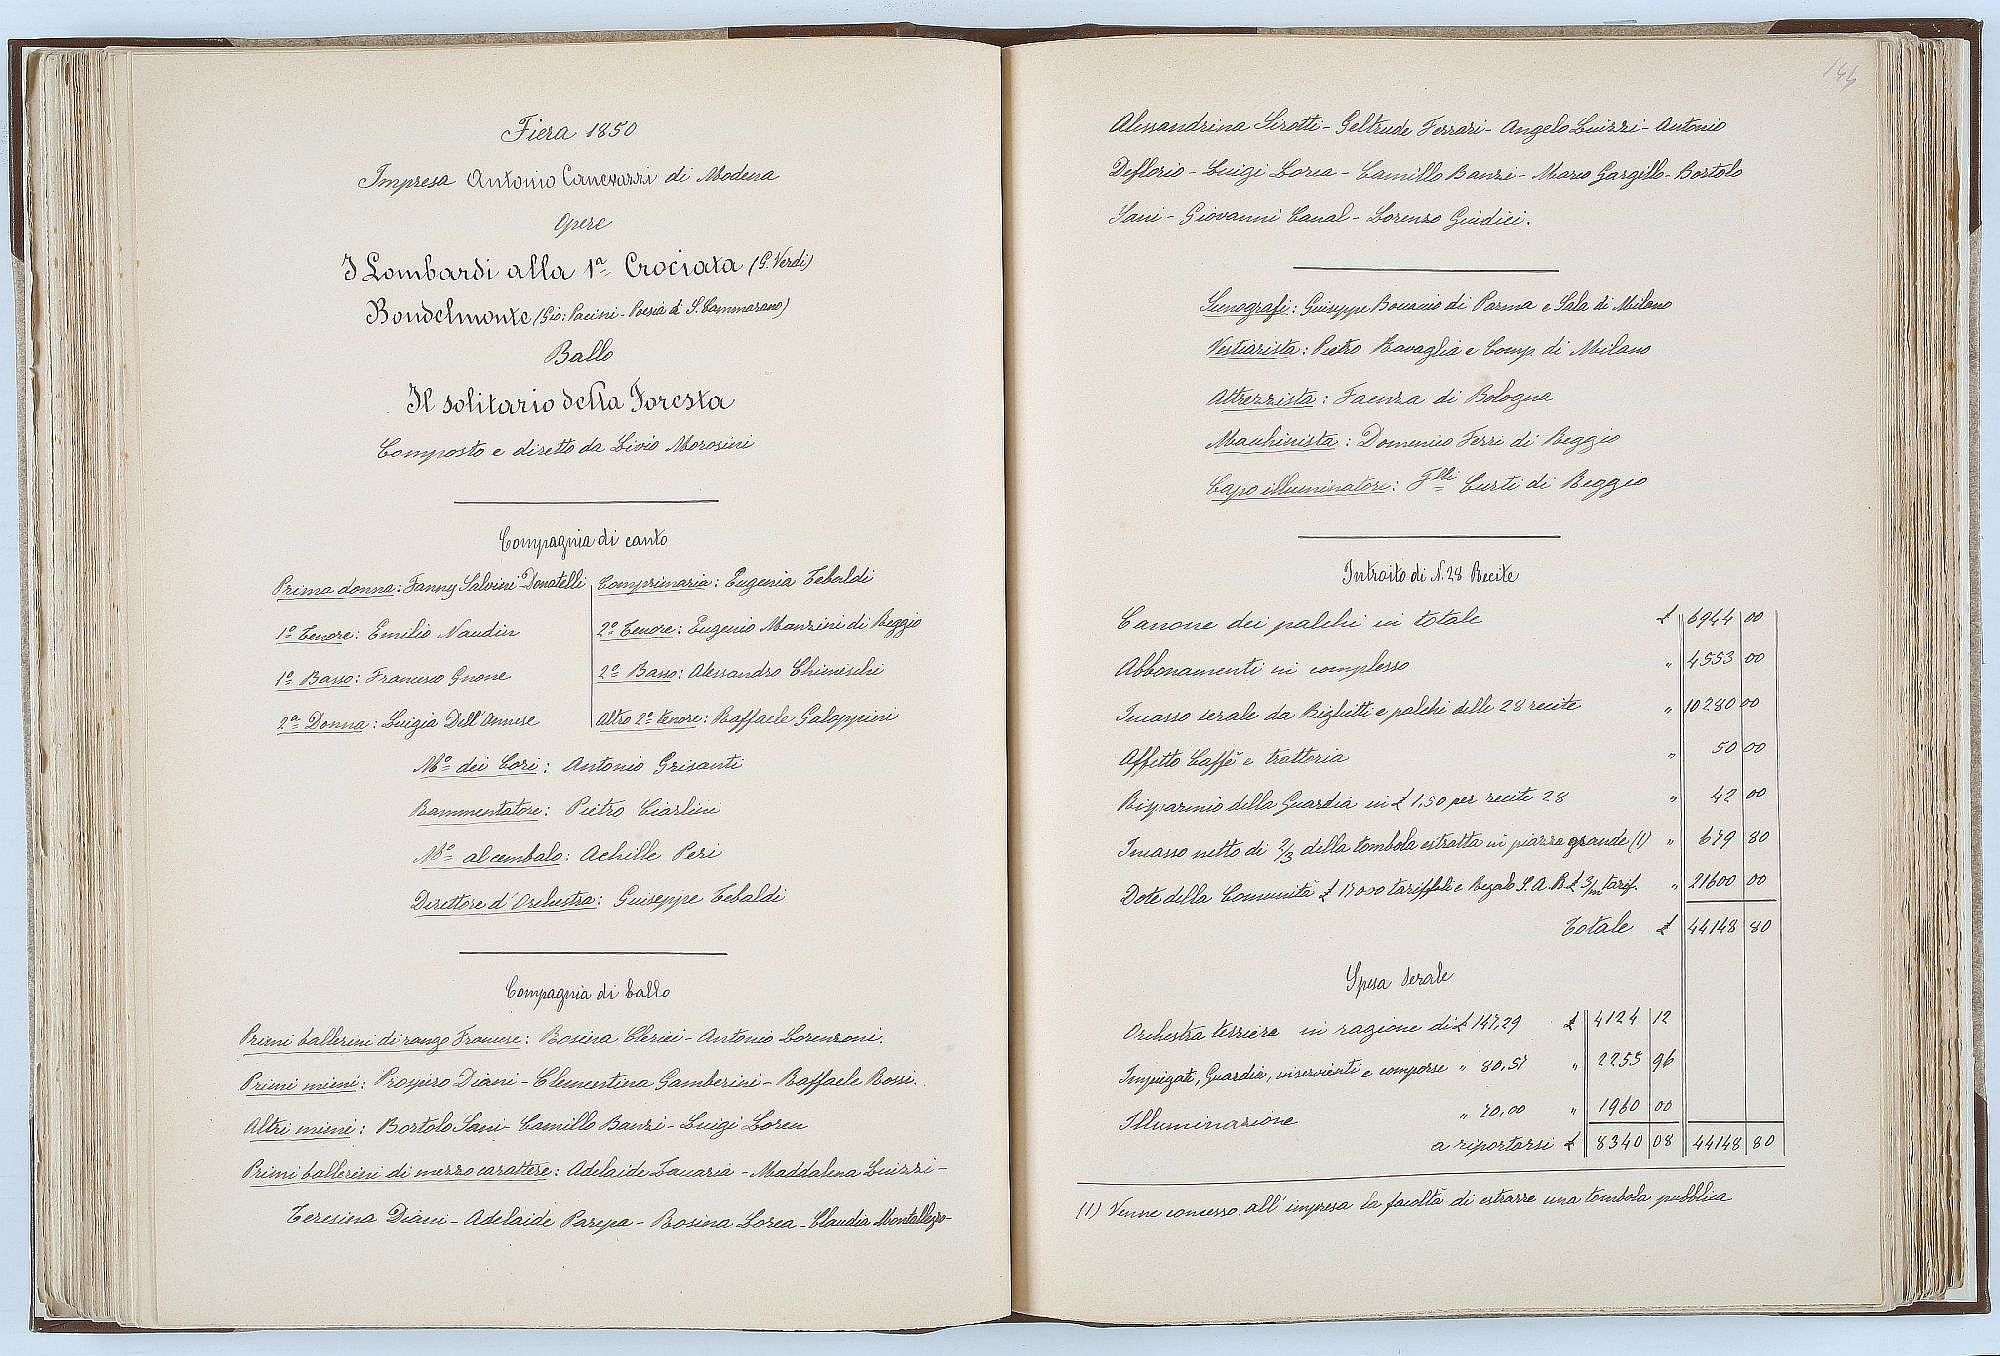 Fiera 1850
Impresa Antonio Canevazzi di Modena
Opere
I Lombardi alla 1ª Crociata (G. Verdi)
Bondelmonte (Gio: Pacini - Poesia di S. Cammarano)
Ballo
Il solitario della Foresta
Composto e diretto da Livio Morosini
Compagnia di canto
Prima donna: Fanny Salvini Donatelli
1º Tenore: Emilio Naudin
1º Basso: Francesco Gnone
2ª Donna: Luigia Dell'Annese
Comprimaria: Eugenia Tebaldi
2º Tenore: Eugenio Manzini di Reggio
2º Basso: Alessandro Chimischi
Altro 2º tenore: Raffaele Galoppini
Mº dei Cori: Antonio Grisanti
Rammentatore: Pietro Ciarlini
Mº al cembalo: Achille Peri
Direttore d'Orchestra: Giuseppe Tebaldi
Compagnia di ballo
Primi ballerini di rango Francese: Rosina Clerici - Antonio Lorenzoni.
Primi mimi: Prospero Diani - Clementina Gamberini - Raffaele Rossi.
Altri mimi: Bortolo Sani - Camillo Banzi - Luigi Lorea
Primi ballerini di mezzo carattere: Adelaide Zaccaria - Maddalena Luizzi -
Teresina Diani - Adelaide Parepa - Rosina Lorea - Claudia Montallegro -
144
Alessandrina Sirotti - Geltrude Ferrari - Angelo Luizzi - Antonio
Deflorio - Luigi Lorea - Camillo Banzi - Marco Gargillo - Bortolo
Sani - Giovanni Canal - Lorenzo Giudici.
Scenografi: Giuseppe Boccaccio di Parma e Sala di Milano
Vestiarista: Pietro Ravaglia e Comp. di Milano
Attrezzista: Faenza di Bologna
Macchinista: Domenico Ferri di Reggio
Capo illuminatori: Flli Curti di Reggio
Introito di N. 28 Recite
Canone dei palchi in totale £ 6944 00
Abbonamenti in complesso " 4553 00
Incasso serale da Biglietti e palchi delle 28 recite " 10280 00
Affitto Caffè e trattoria " 50 00
Risparmio della Guardia in £ 1,50 per recite 28 " 42 00
Incasso netto di 2/3 della tombola estratta in piazza grande (1) " 679 80
Dote della Comunità £ 17000 tariffali e Regalo S.A.R. £ 3/m tarif. " 21600 00
Totale £ 44148 80
Spesa Serale
Orchestra terriera in ragione di £ 147,29 £ 4124 12
Impiegati, Guardia, inservienti e comparse " 80,57 " 2255 96
Illuminazione " 70,00 " 1960 00
a riportarsi £ 8340 08 44148 80
(1) Venne concesso all'impresa la facoltà di estrarre una tombola pubblica